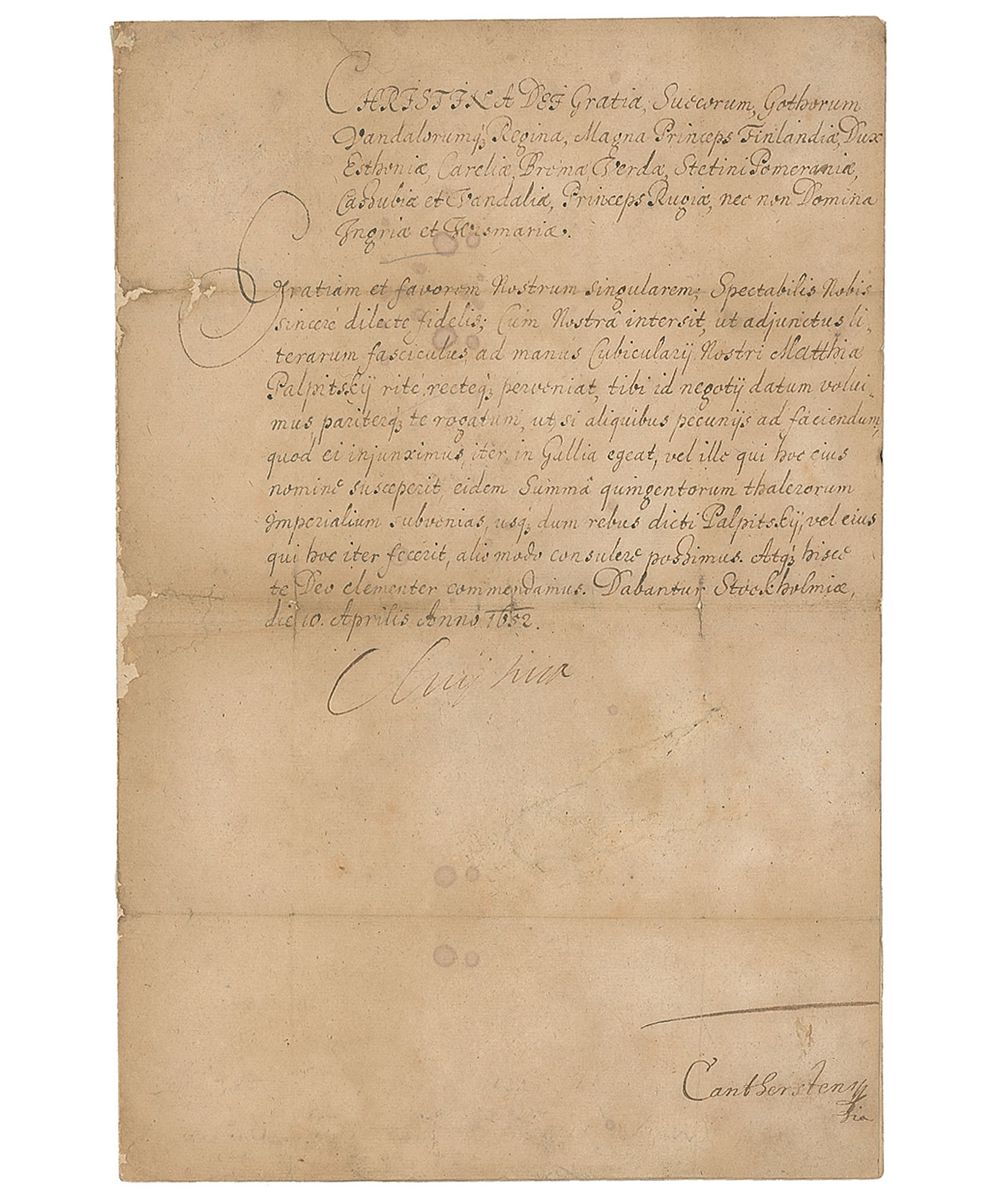 CHRISTINA DEI Gratia, Suecorum, Gothorum
Vandalorumq3 Regina, Magna Princeps Finlandiæ, Dux
Esthoniæ, Careliæ, Bremæ Verdæ, Stetini Pomeraniæ,
Cashubiæ et Vandaliæ, Princeps Rugiæ, nec non Domina
Ingriæ et Wismariæ.
Gratiam et favorem Nostrum singularem; Spectabilis Nobis
sincerè dilecte fidelis; Cum Nostrâ intersit, ut adjunctus li-
terarum fasciculus, ad manus Cubicularij Nostri Matthiæ
Palpitskij ritè, recteq3 perveniat, tibi id negotij datum volui-
mus, pariterq3 te rogatum, ut, si aliquibus pecunijs ad faciendum,
quod ei injunximus, iter, in Gallia egeat, vel ille qui hoc eius
nomine susceperit, eidem Summâ quingentorum thalerorum
Imperialium subvenias, usq3 dum rebus dicti Palpitskij, vel eius
qui hoc iter fecerit, alio modo consulere possimus. Atq3 hisce
te Deo clementer commendamus. Dabantur Stockholmiæ,
die 10. Aprilis Anno 1652.
Cantherstenn